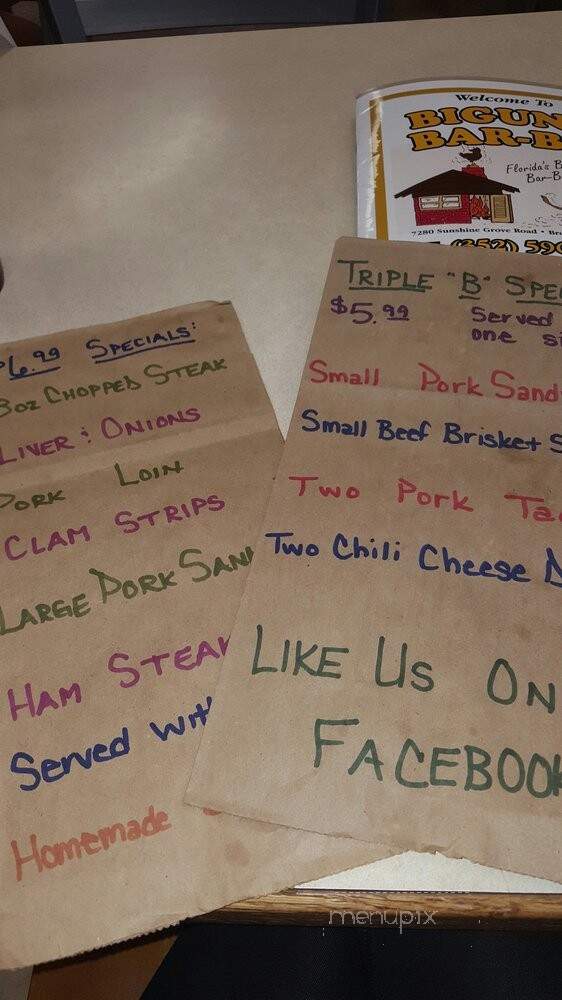 Welcome To
BIGUN
BAR-B
Florida's B
Bar-B
7280 Sunshine Grove Road • Bro
(352) 590
$6.99 SPECIALS:
8oz CHOPPED STEAK
LIVER & ONIONS
PORK LOIN
CLAM STRIPS
LARGE PORK SAN
HAM STEAK
Served wit
Homemade
TRIPLE "B" SPE
$5.99 Served
one si
Small Pork Sand
Small Beef Brisket S
Two Pork Ta
Two Chili Cheese D
LIKE US ON
FACEBOOK
menupix